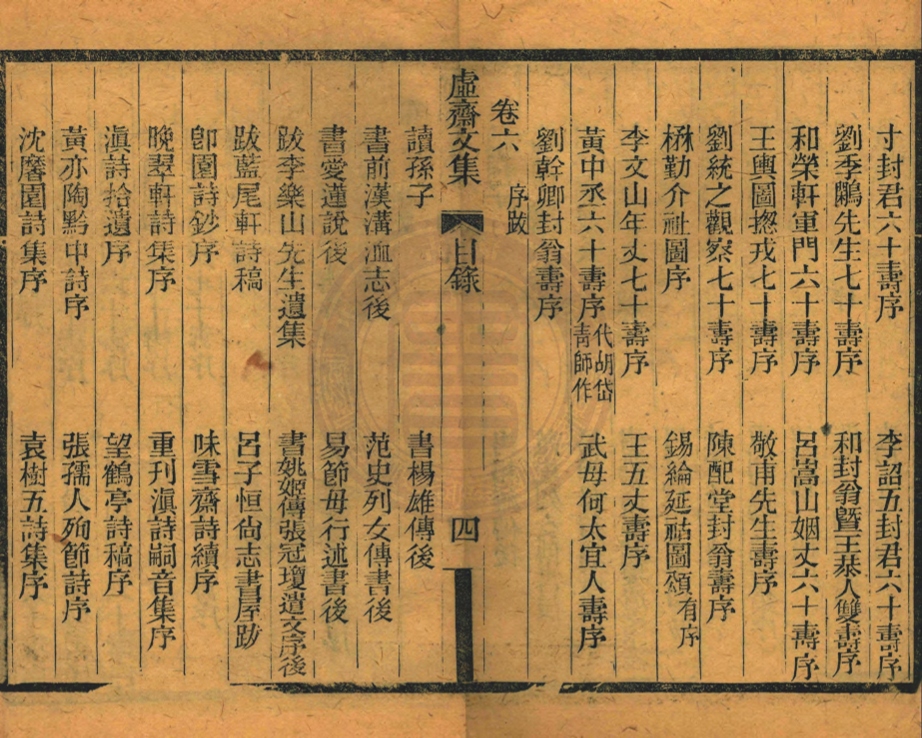 寸封君六十壽序　李詔五封君六十壽序
劉季鶵先生七十壽序　和封翁曁王恭人雙壽序
和榮軒軍門六十壽序　呂嵩山姻丈六十壽序
王輿圖揔戎七十壽序　敬甫先生壽序
劉統之觀察七十壽序　陳配堂封翁壽序
楙勤介祉圖序　錫綸延祜圖頌有序
李文山年丈七十壽序　王五丈壽序
黃中丞六十壽序代胡岱青師作　武母何太宜人壽序
劉幹卿封翁壽序
卷六　序跋
虛齋文集　目錄　四
讀孫子　書楊雄傳後
書前漢溝洫志後　范史列女傳書後
書愛蓮說後　易節母行述書後
跋李樂山先生遺集　書姚姬傳張冠瓊遺文序後
跋藍尾軒詩稿　呂子恒尙志書屋跋
卽園詩鈔序　味雪齋詩續序
晚翠軒詩集序　重刊滇詩嗣音集序
滇詩拾遺序　望鶴亭詩稿序
黃亦陶黔中詩序　張孺人殉節詩序
沈麐園詩集序　袁樹五詩集序